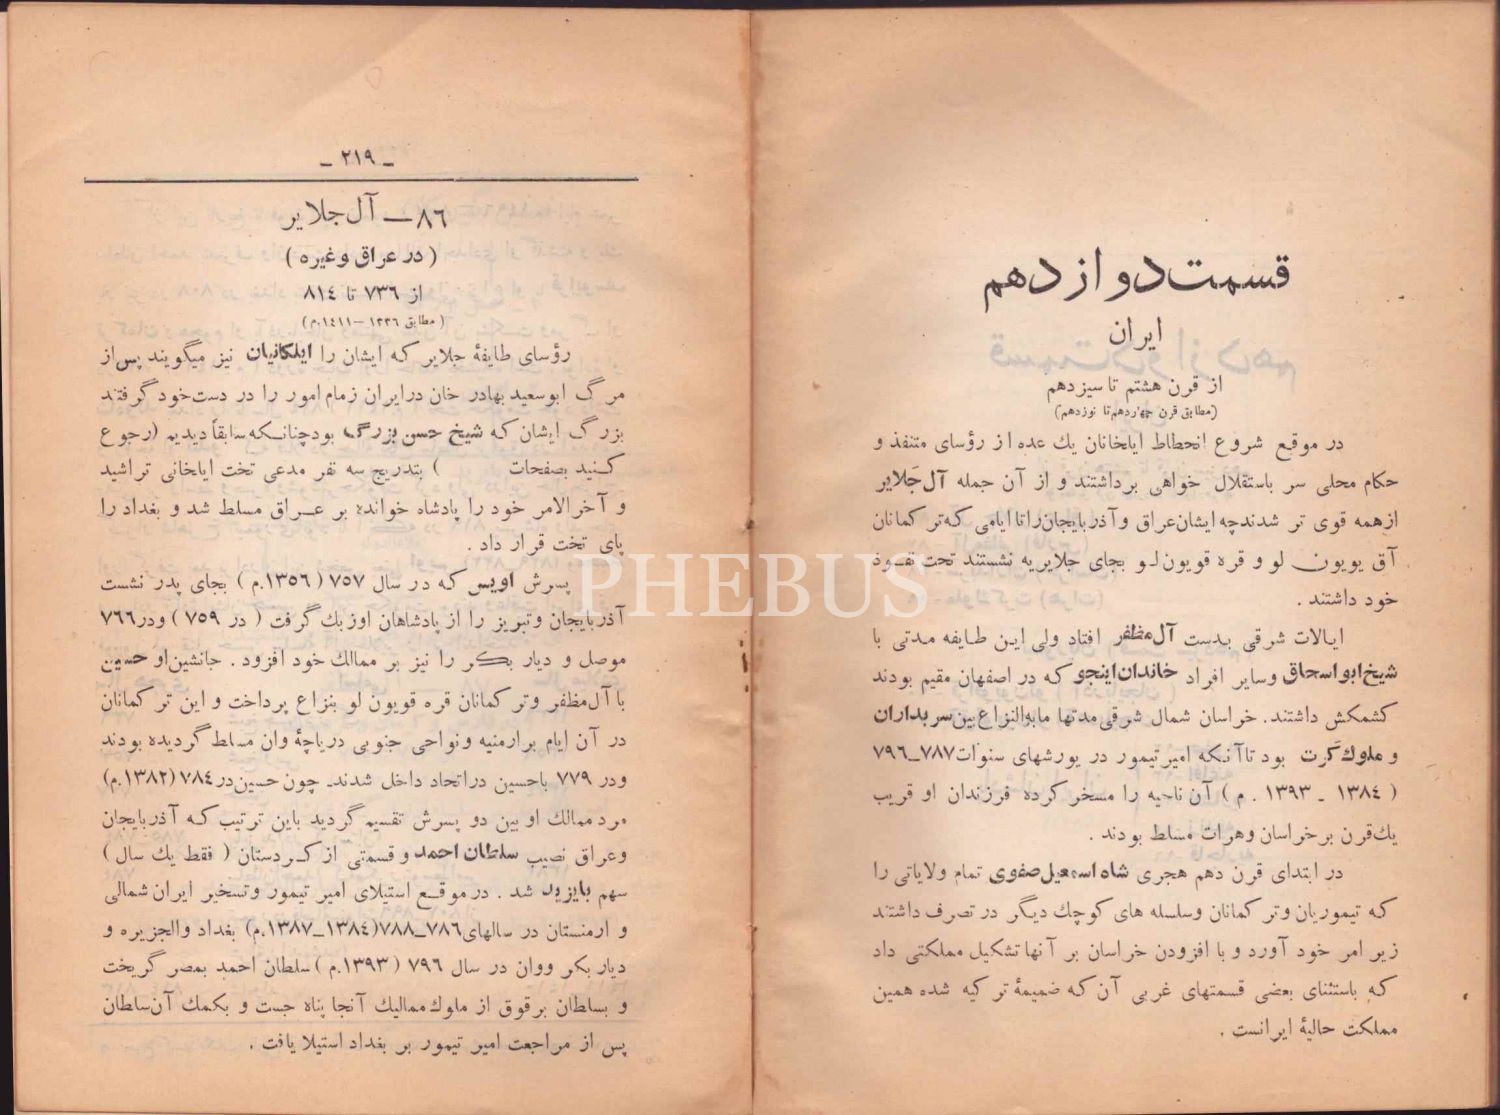 قسمت دوازدهم
ایران
از قرن هشتم تا سیزدهم
(مطابق قرن چهاردهم تا نوزدهم)
در موقع شروع انحطاط ایلخانان یك عده از رؤسای متنفذ و
حكام محلی سر باستقلال خواهی برداشتند و از آن جمله آل جَلایر
از همه قوی تر شدند چه ایشان عراق و آذربایجان را تا ایامی که ترکمانان
آق یویون لو و قره قویون لو بجای جلایریه نشستند تحت نفوذ
خود داشتند .
ایالات شرقی بدست آل مظفر افتاد ولی این طایفه مدتی با
شیخ ابواسحاق وسایر افراد خاندان اینجو که در اصفهان مقیم بودند
کشمکش داشتند. خراسان شمال شرقی مدتها مابه‌النزاع بین سربداران
و ملوك کَرت بود تا آنکه امیر تیمور در یورشهای سنوات ٧٨٧ـ٧٩٦
( ١٣٨٤ ـ ١٣٩٣ . م ) آن ناحیه را مسخر کرده فرزندان او قریب
یك قرن بر خراسان وهرات مسلط بودند .
در ابتدای قرن دهم هجری شاه اسمعیل صفوی تمام ولایاتی را
که تیموریان وترکمانان وسلسله های کوچك دیگر در تصرف داشتند
زیر امر خود آورد و با افزودن خراسان بر آنها تشکیل مملکتی داد
که باستثنای بعضی قسمتهای غربی آن که ضمیمهٔ ترکیه شده همین
مملکت حالیهٔ ایرانست .
ـ ٢١٩ ـ
٨٦ ـ آل جلایر
( در عراق وغیره )
از ٧٣٦ تا ٨١٤
(مطابق ١٣٣٦ – ١٤١١.م)
رؤسای طایفهٔ جلایر که ایشان را ایلکانیان نیز میگویند پس از
مرگ ابوسعید بهادر خان در ایران زمام امور را در دست خود گرفتند
بزرگ ایشان که شیخ حسن بزرگ بود چنانکه سابقاً دیدیم (رجوع
کنید بصفحات ) بتدریج سه نفر مدعی تخت ایلخانی تراشید
و آخرالامر خود را پادشاه خوانده بر عراق مسلط شد و بغداد را
پای تخت قرار داد .
پسرش اویس که در سال ٧٥٧ ( ١٣٥٦.م ) بجای پدر نشست
آذربایجان و تبریز را از پادشاهان اوزبك گرفت ( در ٧٥٩ ) و در ٧٦٦
موصل و دیار بکر را نیز بر ممالك خود افزود . جانشین او حسین
با آل مظفر وترکمانان قره قویون لو بنزاع پرداخت و این ترکمانان
در آن ایام بر ارمنیه و نواحی جنوبی دریاچهٔ وان مسلط گردیده بودند
ودر ٧٧٩ باحسین در اتحاد داخل شدند. چون حسین در ٧٨٤ (١٣٨٢.م)
مرد ممالك او بین دو پسرش تقسیم گردید باین ترتیب که آذربایجان
وعراق نصیب سلطان احمد و قسمتی از کردستان ( فقط یك سال )
سهم بایزید شد . در موقع استیلای امیر تیمور وتسخیر ایران شمالی
و ارمنستان در سالهای ٧٨٦ـ٧٨٨ (١٣٨٤ـ١٣٨٧.م) بغداد والجزیره و
دیار بکر ووان در سال ٧٩٦ ( ١٣٩٣.م ) سلطان احمد بمصر گریخت
و بسلطان برقوق از ملوك ممالیك آنجا پناه جست و بکمك آن سلطان
پس از مراجعت امیر تیمور بر بغداد استیلا یافت .
PHEBUS